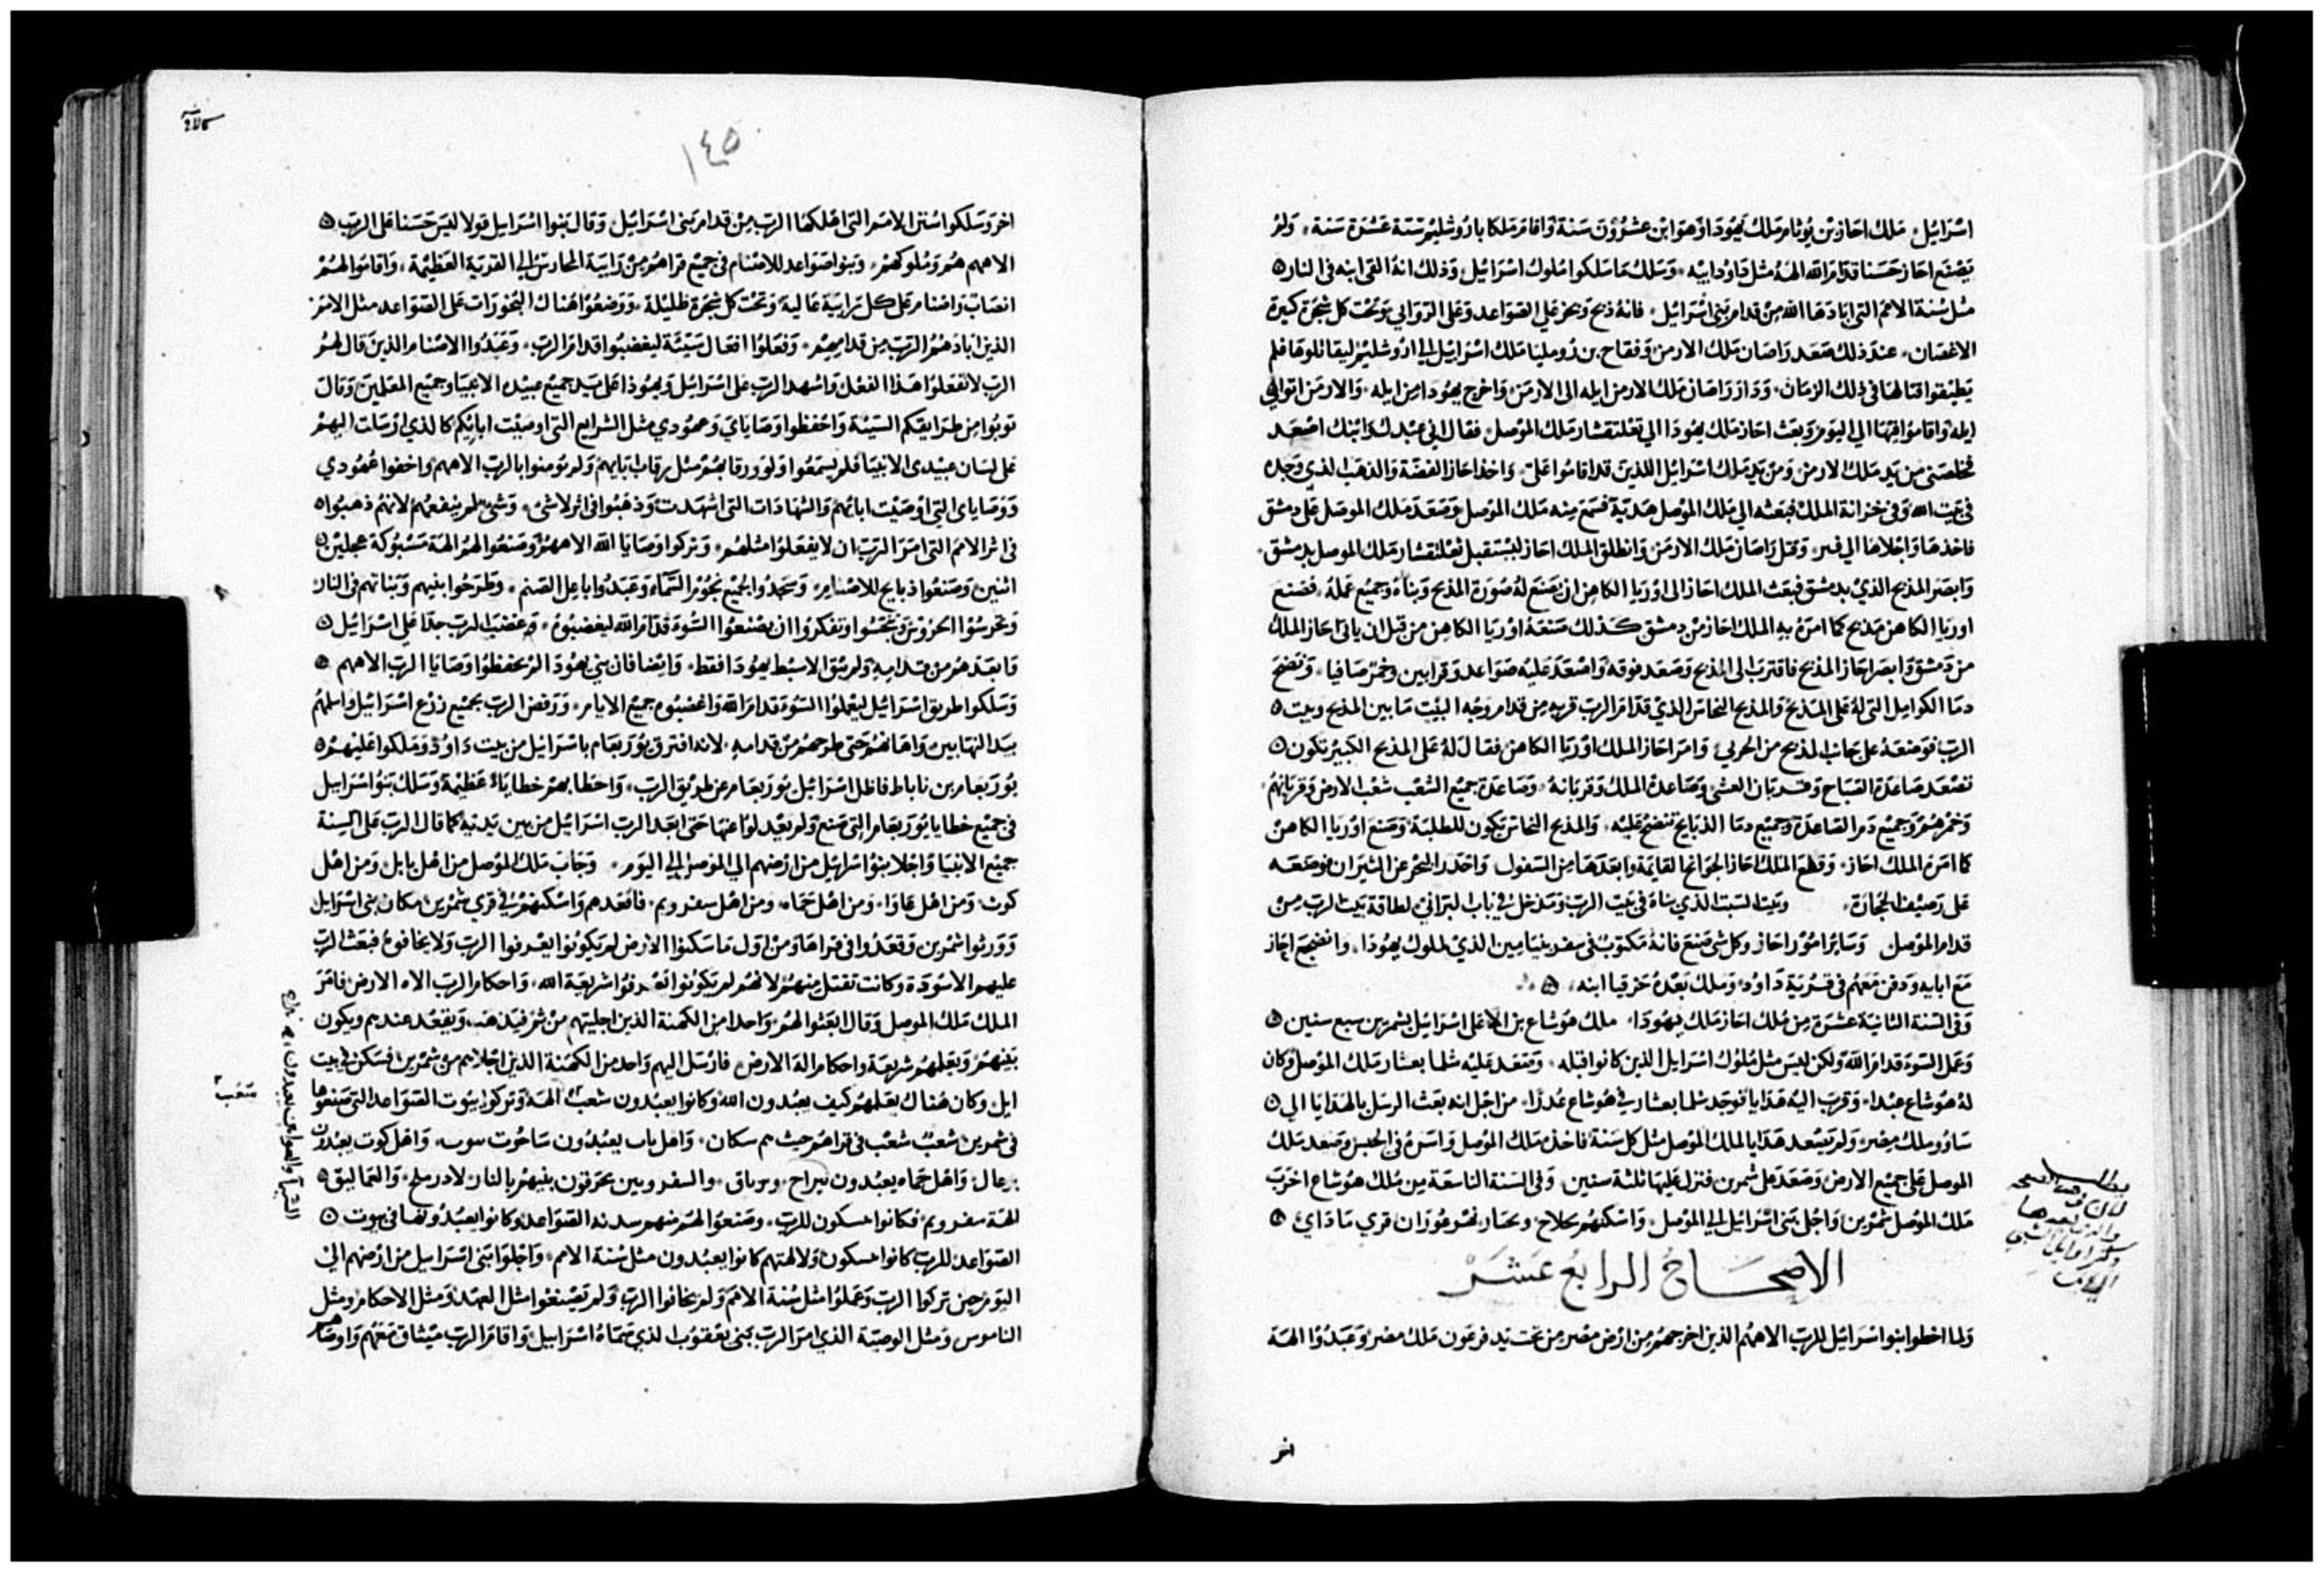 اسرائيل ملك احاز بن يوثام ملك يهودا وهو ابن عشرون سنة واقام ملكا باروشليم ستة عشرة سنة ولم
يصنع احاز حسنا قدام الله الهه مثل داود ابيه وسلك ما سلكوا ملوك اسرائيل وذلك انه القى ابنه في النار
مثل سنة الامم التي ابادها الله من قدام بني اسرائيل فانه ذبح وبخر على الصواعد وعلى الروابي وتحت كل شجرة كبيرة
الاغصان عند ذلك صعد راصان ملك الارمن وفقاح بن رومليا ملك اسرائيل الى اروشليم ليقاتلوها فلم
يطيقوا قتالها في ذلك الزمان ورد راصان ملك الارمن ايله الى الارمن واخرج يهودا من ايله والارمن اتوا الى
ايله واقاموا فيها الى اليوم وبعث احاز ملك يهودا الى تغلتفلسار ملك الموصل فقال اني عبدك وابنك اصعد
فخلصني من يد ملك الارمن ومن يد ملك اسرائيل اللذين قد اقاموا علي واخذ احاز الفضة والذهب الذي وجده
في بيت الله وفي خزانة الملك فبعثه الى ملك الموصل هدية فسمع منه ملك الموصل وصعد ملك الموصل على دمشق
فاخذها واجلاها الى قير وقتل راصان ملك الارمن وانطلق الملك احاز ليستقبل تغلتفلسار ملك الموصل بدمشق
وابصر المذبح الذي بدمشق فبعث الملك احاز الى اوريا الكاهن ان صنع له صورة المذبح وبناه وجميع عمله فصنع
اوريا الكاهن مذبح كما امره به الملك احاز من دمشق كذلك صنعه اوريا الكاهن من قبل ان ياتي احاز الملك
من دمشق وابصر احاز المذبح فاقترب الى المذبح وصعد فوقه واصعد عليه صواعد وقرابين وخمر صافيا ونضح
دما الكوامل التي له على المذبح والمذبح النحاس الذي قدام الرب قربه من قدام وجه البيت ما بين المذبح وبيت
الرب فوضعه على جانب المذبح من الحربي وامر احاز الملك اوريا الكاهن فقال له على المذبح الكبير تكون
تصعد صاعدة الصباح وقربان العشي وصاعدة الملك وقربانه وصاعدة جميع الشعب شعب الارض وقربانهم
وخمرهم وجميع دم الصاعدة وجميع دما الذبايح تنضح عليه والمذبح النحاس يكون للطلبة وصنع اوريا الكاهن
كما امره الملك احاز وقطع الملك احاز الجوانح القايمة وابعدها من السفول واحدر البحر عن الثيران فوضعه
على رصيف الحجارة وبيت السبت الذي بناه في بيت الرب ومدخل في باب البراني لطاقة بيت الرب من
قدام الموصل وساير امور احاز وكل شي صنع فانه مكتوب في سفر بنيامين الذي لملوك يهودا وانضجع احاز
مع ابايه ودفن معهم في قرية داود وملك بعده حزقيا ابنه
وفي السنة الثانية عشرة من ملك احاز ملك يهودا ملك هوشاع بن الا على اسرائيل بشمرين سبع سنين
وعمل السوء قدام الله ولكن ليس مثل ملوك اسرائيل الذين كانوا قبله وصعد عليه شلما بعشار ملك الموصل وكان
له هوشاع عبدا وقرب اليه هدايا فوجد شلما بعشار في هوشاع غدرا من اجل انه بعث الرسل بالهدايا الى
ساوو ملك مصر ولم يصعد هدايا لملك الموصل مثل كل سنة فاخذه ملك الموصل واسره في الحبس وصعد ملك
الموصل على جميع الارض وصعد على شمرين فنزل عليها ثلثة سنين وفي السنة التاسعة من ملك هوشاع اخرب
ملك الموصل شمرين واجلى بني اسرائيل الى الموصل واسكنهم بحلاح وبخابور نهر غوزان قرى ماداي
الاصحاح الرابع عشر
ولما اخطوا بنوا اسرائيل للرب الاههم الذين اخرجهم من ارض مصر من تحت يد فرعون ملك مصر وعبدوا الهة
اخر
١٤٥
اخر وسلكوا سنن الامم التي اهلكها الرب من قدام بني اسرائيل وقال بنوا اسرائيل قولا ليس حسنا على الرب
الاههم هم وملوكهم وبنوا صواعد للاصنام في جميع قراهم من رابية الحارس الى القرية العظيمة واقاموا لهم
انصاب واصنام على كل رابية عالية وتحت كل شجرة ظليلة ووضعوا هناك البخورات على الصواعد مثل الامم
الذين ابادهم الرب من قدامهم وفعلوا افعال سيئة ليغضبوا قدام الرب وعبدوا الاصنام الذين قال لهم
الرب لا تفعلوا هذا الفعل واشهد الرب على اسرائيل ويهوذا على يد جميع عبيده الانبيا وجميع المعلمين وقال
توبوا من طرايقكم السيئة واحفظوا وصاياي وعهودي مثل الشرايع التي اوصيت ابائكم كالذي ارسلت اليهم
على لسان عبيدي الانبيا فلم يسمعوا ولوورقابهم مثل رقاب ابايهم ولم يومنوا بالرب الاههم واخفوا عهودي
ووصاياى التي اوصيت ابائهم والشهادات التي اشهدت وذهبوا في اثر لا شي وشي لم ينفعهم لانهم ذهبوا
في اثر الامم التي امر الرب ان لا يفعلوا مثلهم وتركوا وصايا الله الاههم وصنعوا لهم الهة مسبوكة عجلين
اثنين وصنعوا ذبايح للاصنام وسجدوا لجميع نجوم السماء وعبدوا باعل الصنم وطرحوا بنيهم وبناتهم في النار
وتفكروا ان يصنعوا السوء قدام الله ليغضبوه وغضب الرب جدا على اسرائيل
فابعدهم من قدامه ولم يبق الا سبط يهودا فقط وايضا فان بني يهودا لم يحفظوا وصايا الرب الاههم
وسلكوا طريق اسرائيل ليعملوا السوء قدام الله واغضبوه جميع الايام ورفض الرب بجميع زرع اسرائيل واسلمهم
بيد النهابين واهانهم حتى طرحهم من قدامه لانه افترق يوربعام باسرائيل من بيت داود وملكوا عليهم
يوربعام بن ناباط فاظل اسرائيل يوربعام عن طريق الرب واخطا بهم خطاياء عظيمة وسلك بنوا اسرائيل
في جميع خطايا يوربعام التي صنع ولم يعدلوا عنها حتى ابعد الرب اسرائيل من بين يديه كما قال الرب على السنة
جميع الانبيا واجلا بنوا اسرائيل من ارضهم الى الموصل الى اليوم وجاب ملك الموصل من اهل بابل ومن اهل
كوت ومن اهل عاوا ومن اهل حماه ومن اهل سفرويم فاقعدهم واسكنهم في قرى شمرين مكان بني اسرائيل
وورثوا شمرين وقعدوا في قراها ومن اول ما سكنوا الارض لم يكونوا يعرفوا الرب ولا يخافوه فبعث الرب
عليهم الاسودة وكانت تقتل منهم لانهم لم يكونوا تعرفوا شريعة الله واحكام الرب الاه الارض فامر
الملك ملك الموصل وقال ابعثوا لهم واحدا من الكهنة الذين اجليتهم من شمرين ويقعد عندهم ويكون
بينهم ويعلمهم شريعة واحكام اله الارض فارسل اليهم واحد من الكهنة الذين اجلاهم من شمرين فسكن في بيت
ايل وكان هناك يعلمهم كيف يعبدون الله وكانوا يعبدون شعب الهة وتركوا بيوت الصواعد التي صنعوها
في شمرين شعب شعب في قراهم حيث هم سكان واهل باب يعبدون ساخوت واهل كوت يعبدون
واهل حماه يعبدون والسفرويين يحرقون بنيهم بالنار لادرملخ
الهة سفرويم فكانوا يسكون للرب وصنعوا لهم منهم سدنة الصواعد وكانوا يعبدونها في بيوت
الصواعد للرب كانوا يسكون ولالهتهم كانوا يعبدون مثل سنة الامم واجلوا بني اسرائيل من ارضهم الى
اليوم حين تركوا الرب وعملوا مثل سنة الامم ولم يخافوا الرب ولم يصنعوا مثل العهد ومثل الاحكام ومثل
الناموس ومثل الوصية الذي امر الرب بني يعقوب الذي سماه اسرائيل واقام الرب ميثاق معهم واوصاهم
شعب